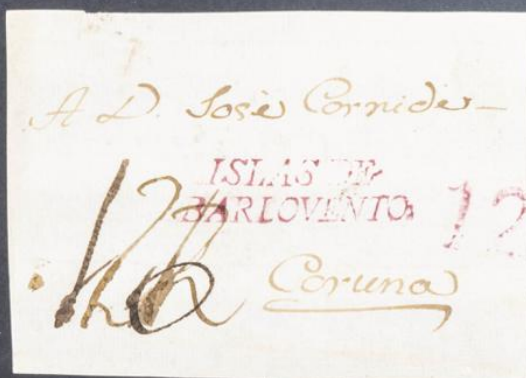 A D. José Cornide
ISLAS DE
BARLOVENTO
12
Coruna